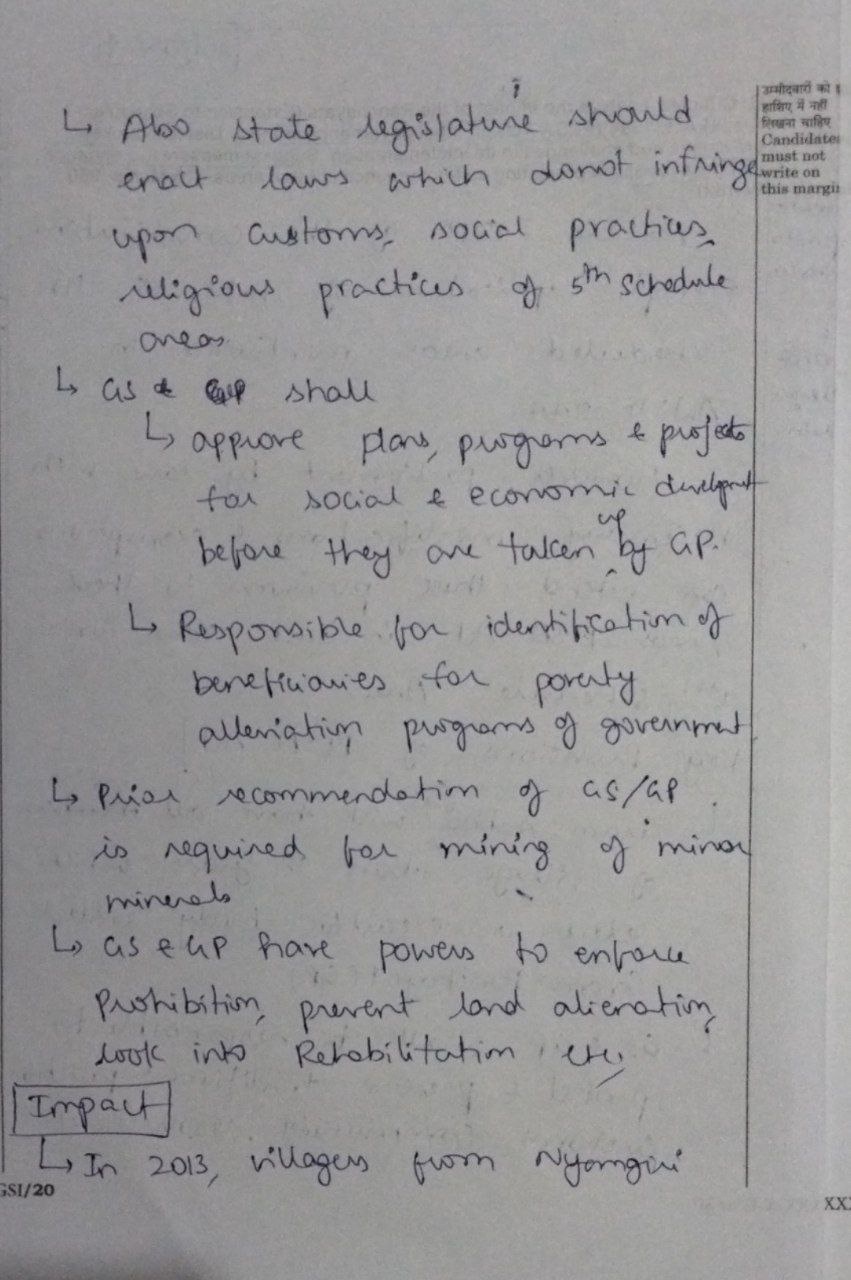 ↳ Also state legislature should
enact laws which donot infringe
upon customs, social practices,
religious practices of 5th Schedule
areas
↳ GS & GP shall
↳ approve plans, programs & projects
for social & economic development
before they are taken up by GP.
↳ Responsible for identification of
beneficiaries for poverty
alleviation programs of government
↳ Prior recommendation of GS/GP
is required for mining of minor
minerals
↳ GS & GP have powers to enforce
Prohibition, prevent land alienation,
look into Rehabilitation etc.
Impact
↳ In 2013, villagers from Nyamgiri
उम्मीदवारों को
हाशिए में नहीं
लिखना चाहिए
Candidates
must not
write on
this margin
GSI/20
XXX